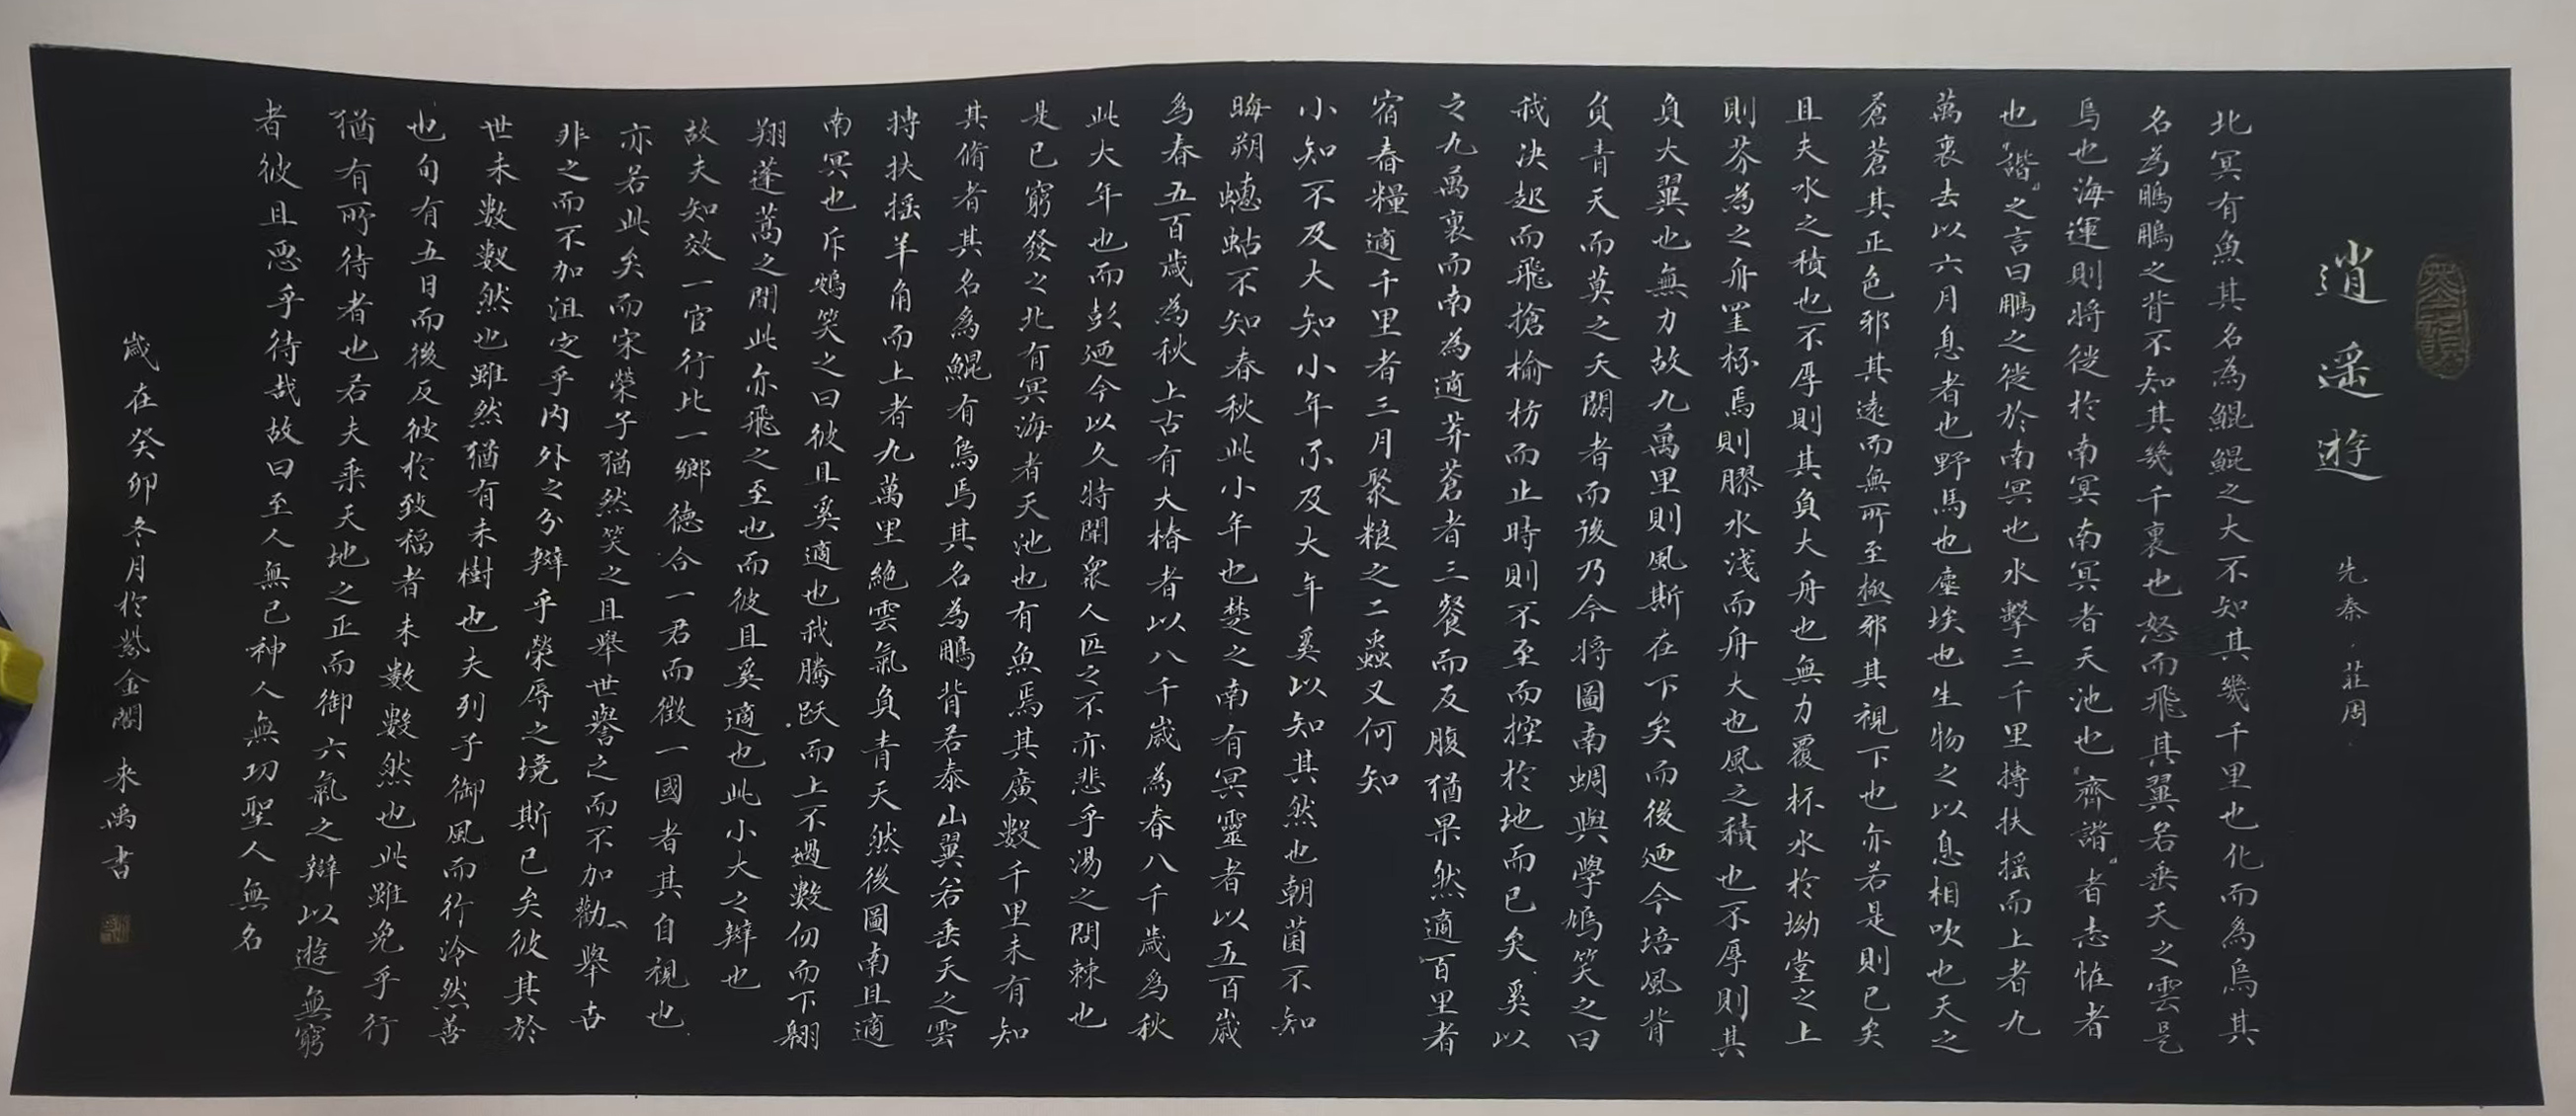 逍遥遊
先秦·莊周
北冥有魚其名為鯤鯤之大不知其幾千里也化而為鳥其
名為鵬鵬之背不知其幾千裏也怒而飛其翼若垂天之雲是
鳥也海運則將徙於南冥南冥者天池也“齊諧”者志怪者
也“諧”之言曰鵬之徙於南冥也水擊三千里摶扶摇而上者九
萬裏去以六月息者也野馬也塵埃也生物之以息相吹也天之
蒼蒼其正色邪其遠而無所至極邪其視下也亦若是則已矣
且夫水之積也不厚則其負大舟也無力覆杯水於坳堂之上
則芥為之舟置杯焉則膠水淺而舟大也風之積也不厚則其
負大翼也無力故九萬里則風斯在下矣而後廼今培風背
負青天而莫之夭閼者而後乃今將圖南蜩與學鳩笑之曰
我决起而飛搶榆枋而止時則不至而控於地而已矣奚以
之九萬裏而南為適莽蒼者三餐而反腹猶果然適百里者
宿舂糧適千里者三月聚糧之二蟲又何知
小知不及大知小年不及大年奚以知其然也朝菌不知
晦朔蟪蛄不知春秋此小年也楚之南有冥靈者以五百歲
為春五百歲為秋上古有大椿者以八千歲為春八千歲為秋
此大年也而彭廼今以久特聞衆人匹之不亦悲乎湯之問棘也
是已窮發之北有冥海者天池也有魚焉其廣數千里未有知
其脩者其名為鯤有鳥焉其名為鵬背若泰山翼若垂天之雲
摶扶摇羊角而上者九萬里絶雲氣負青天然後圖南且適
南冥也斥鴳笑之曰彼且奚適也我騰躍而上不過數仞而下翱
翔蓬蒿之間此亦飛之至也而彼且奚適也此小大之辯也
故夫知效一官行比一鄉德合一君而徵一國者其自視也
亦若此矣而宋榮子猶然笑之且舉世譽之而不加勸舉世
非之而不加沮定乎内外之分辯乎榮辱之境斯已矣彼其於
世未數數然也雖然猶有未樹也夫列子御風而行泠然善
也旬有五日而後反彼於致福者未數數然也此雖免乎行
猶有所待者也若夫乘天地之正而御六氣之辯以遊無窮
者彼且惡乎待哉故曰至人無己神人無功聖人無名
歲在癸卯冬月於紫金閣 來禹書